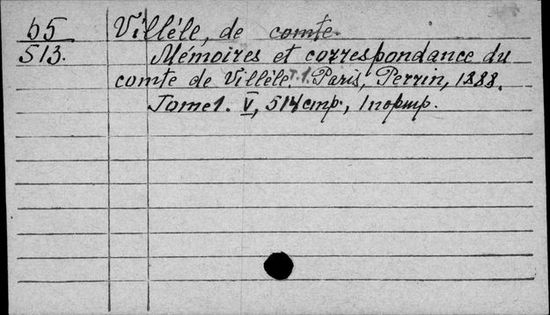 b5
513.
Villéle, de comte.
Mémoires et correspondance du
comte de Villéle. T.1. Paris, Perrin, 1888.
Tome 1. V, 514 cmp., 1 портр.